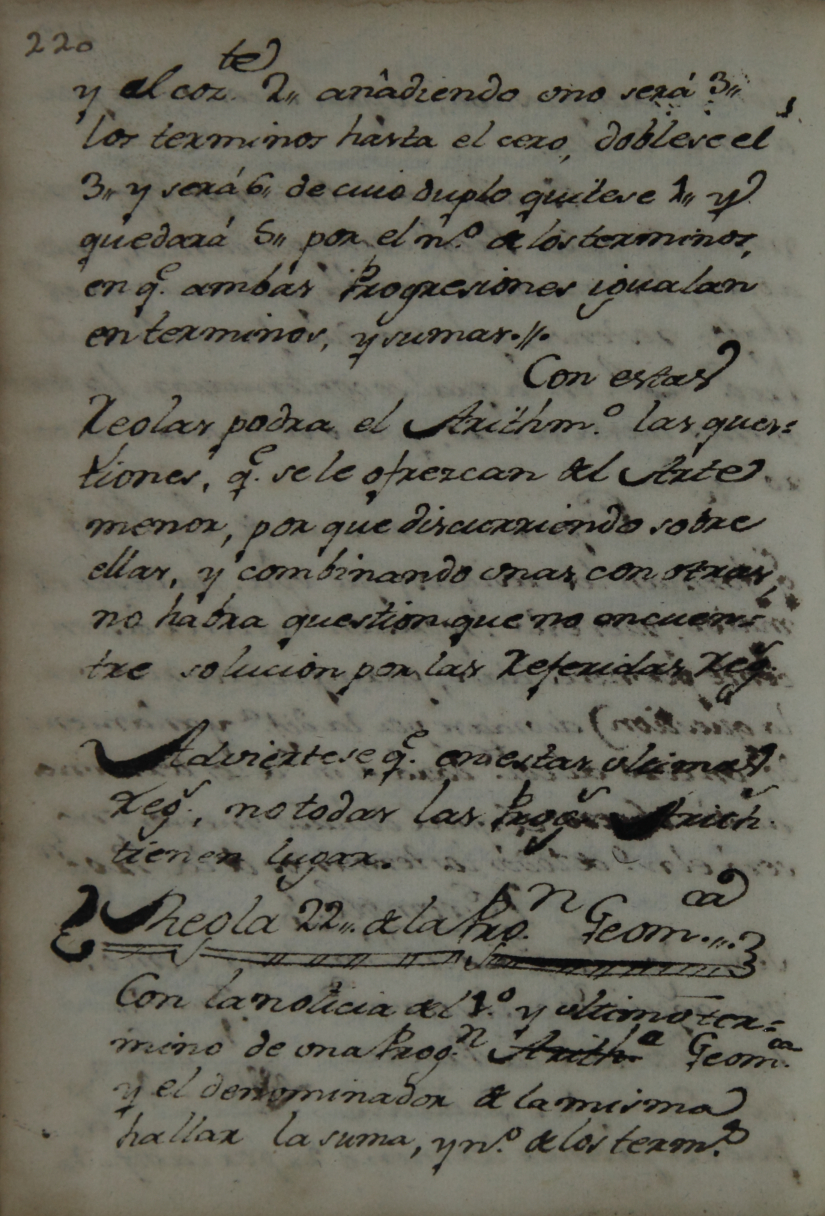 220
y el coz.te 2,, añadiendo uno será 3,,
los terminos hasta el cero, doblese el
3,, y será 6,, de cuio duplo quitese 1,, y
quedará 5,, por el n.º de los terminos,
en q.e ambas Progresiones igualan
en terminos, y sumas.//.
Con estas
Reglas podra el Arithm.º las ques=
tiones, q.e se le ofrezcan del Arte
menor, por que discurriendo sobre
ellas, y combinando unas con otras,
no habra question que no encuen=
tre solucion por las Referidas Reg.s
Adviertese q.e en estas ultimas
Reg.s, no todas las Prog.s Arith.
tienen lugar.
Regla 22,, de la Pro.n Geom.ca
Con la noticia del 1.º y ultimo ter=
mino de una Prog.n Arith.a Geom.ca
y el denominador de la misma
hallar la suma, y n.º de los term.s